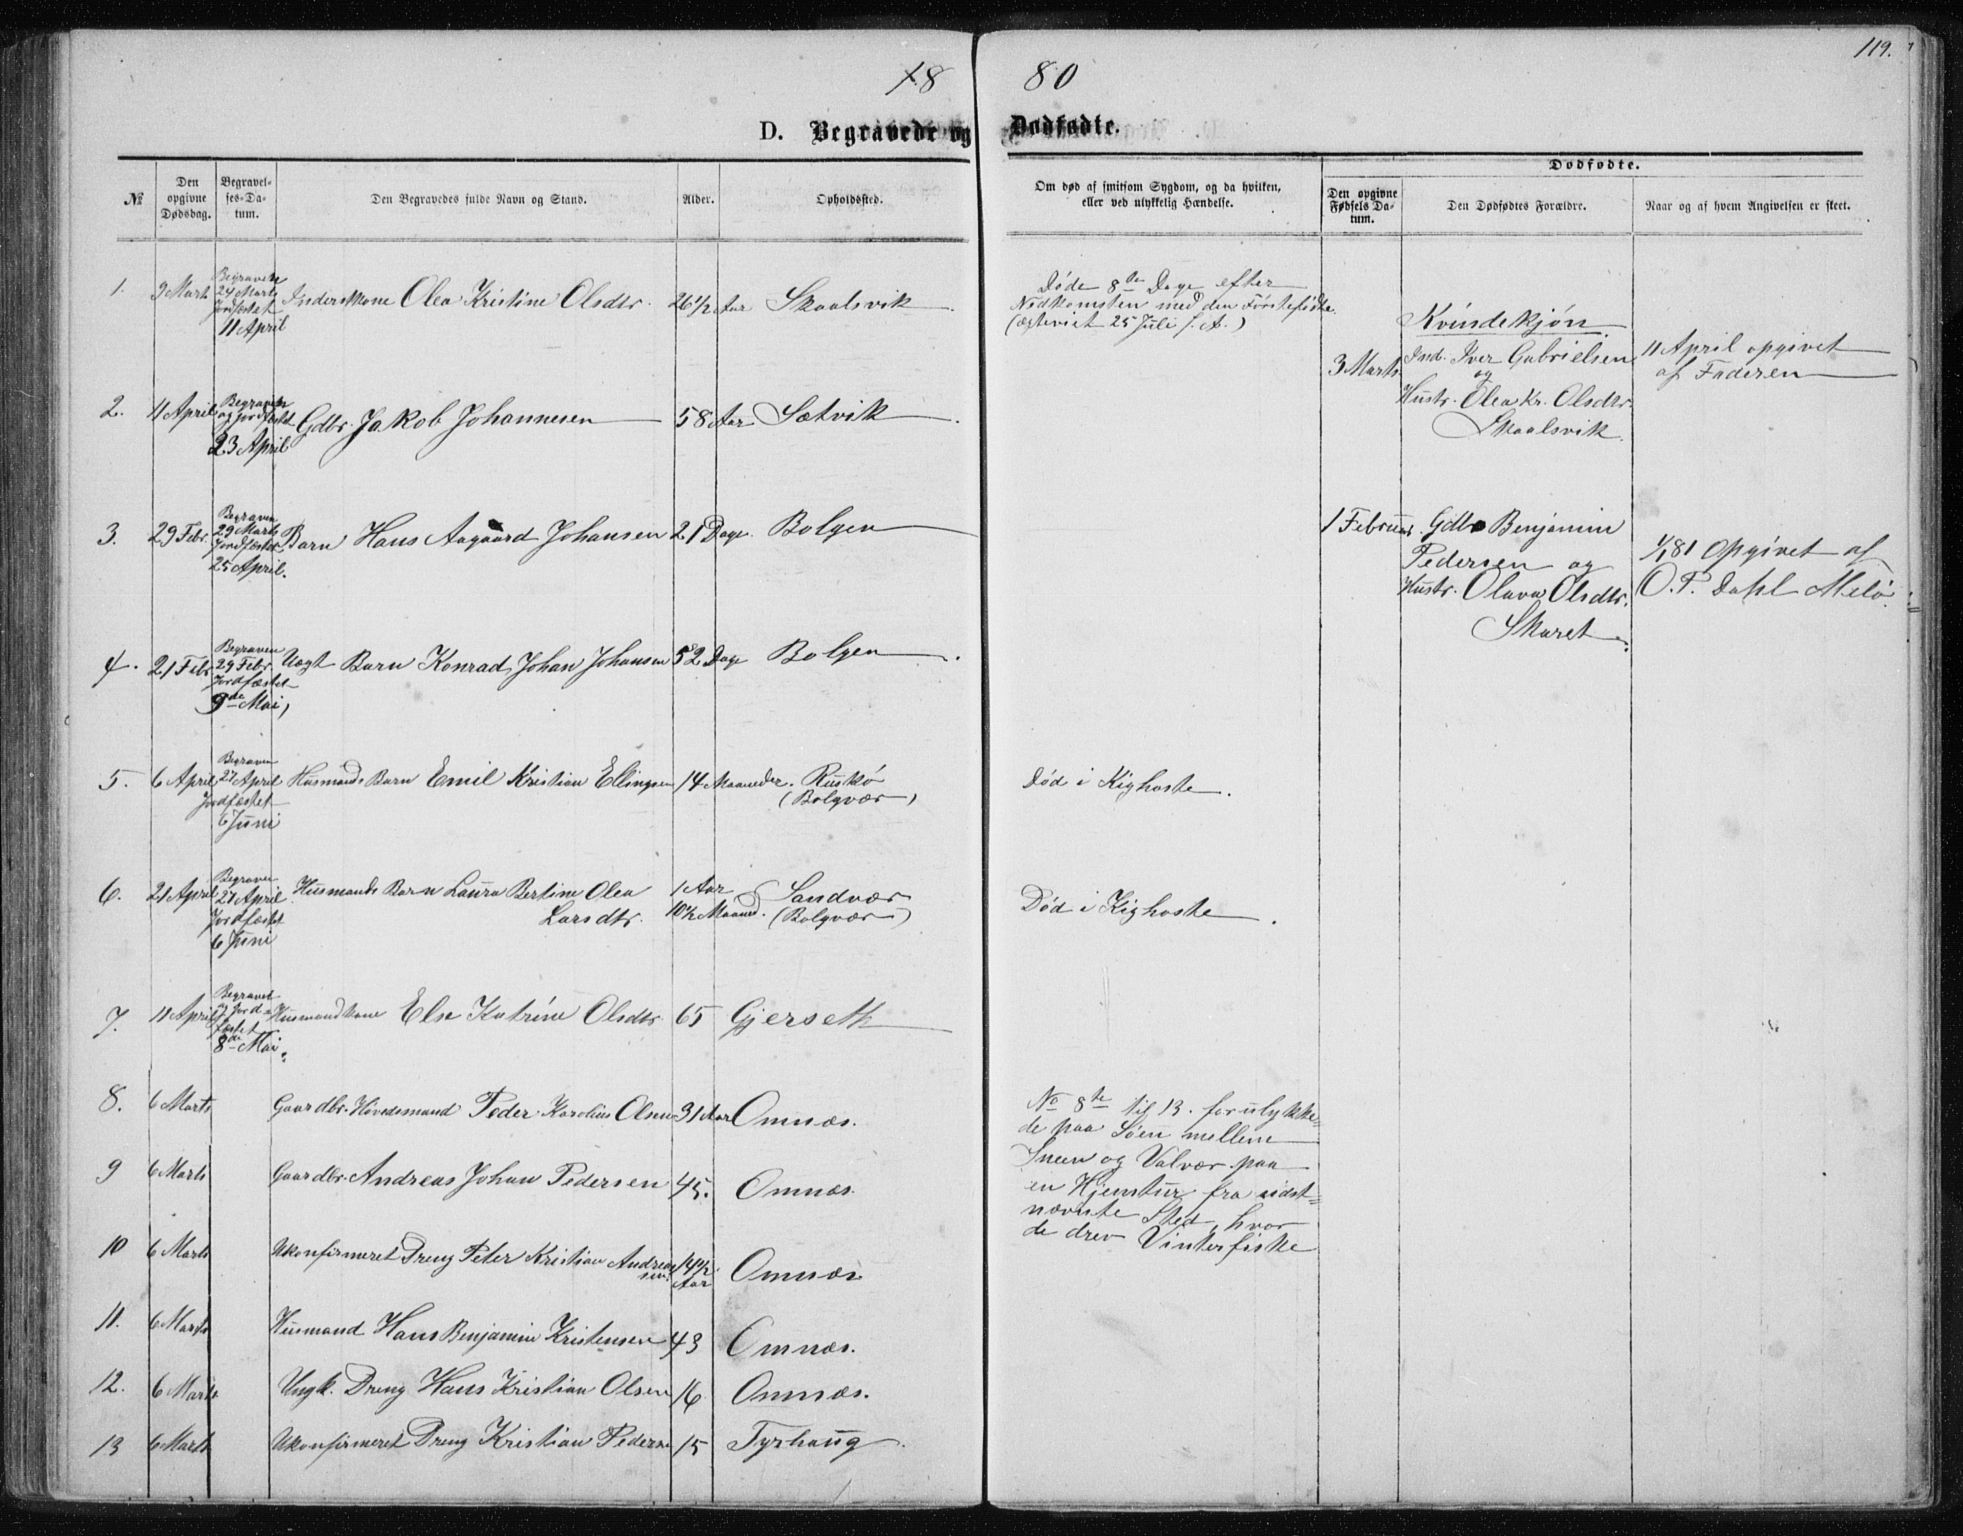 119.
18 80
D. Begravede og Dødfødte.
№
Den opgivne Dødsdag.
Begravelses-Datum.
Den Begravedes fulde Navn og Stand.
Alder.
Opholdssted.
Om død af smitsom Sygdom, og da hvilken,
eller ved ulykkelig Hændelse.
Dødfødte.
Den opgivne Fødsels Datum.
Den Dødfødtes Forældre.
Naar og af hvem Angivelsen er skeet.
1. 9 Marts Begraven 24 Marts Jordfæstet 11 April Inderskone Olea Kristine Olsdtr. 26 1/2 Aar Skaalsvik.
Døde 8de Dage efter
Nedkomsten med den Førstefødte.
(ægteviet 25 Juli f. A.)
Kvindekjøn
3 Marts. Ind. Iver Gabrielsen
og
Hustr. Olea Kr. Olsdtr.
Skaalsvik.
11 April opgivet
af Faderen
2. 11 April Begraven og jordfæstet 23 April Gdbr. Jakob Johannesen 58 Aar Sætvik.
3. 29 Febr. Begraven 29 Marts Jordfæstet 25 April. Barn Hans Aagaard Johansen 21 Dage. Bolgen
1 Februar Gdbr Benjamin
Pedersen og
Hustr. Olava Olsdtr.
Skaret
1/1 81 Opgivet af
O. P. Dahl Melø.
4. 21 Febr Begraven 29 Febr. Jordfæstet 9de Mai, Uægt Barn Konrad Johan Johansen 52 Dage Bolgen.
5. 6 April Begraven 27 April Jordfæstet 6 Juni Husmands Barn Emil Kristian Ellingsen 14 Maaneder. Ruskø
(Bolgvær)
Død i Kighoste.
6. 21 April Begraven 27 April Jordfæstet 6 Juni Husmands Barn Laura Bertine Olea
Larsdtr. 1 Aar 10 1/2 Maaned. Sandvær
(Bolgvær)
Død i Kighoste.
7. 11 April Begravet og Jordfæstet 8de Mai. Husmandkone Else Katrine Olsdtr 65 Gjerseth
8. 6 Marts Gaardbr. Høvedsmand Peder Karolius Olsen 31 Aar Omnæs.
No 8de til 13. forulykke-
de paa Søen mellem
Sneen og Valvær paa
en Hjemtur fra sidst-
nævnte Sted, hvor
de drev Vinterfiske
9 6 Marts Gaardbr. Andreas Johan Pedersen 45. Omnæs.
10 6 Marts Ukonfirmeret Dreng Peter Kristian Andreas
sen. 14 1/2 Aar Omnæs
11. 6 Marts Husmand Hans Benjamin Kristensen 43 Omnæs.
12. 6 Marts Ungk. Dreng Hans Kristian Olsen 16 Omnæs.
13 6 Marts Ukonfirmeret Dreng Kristian Pedersen 15 Tyrhaug.